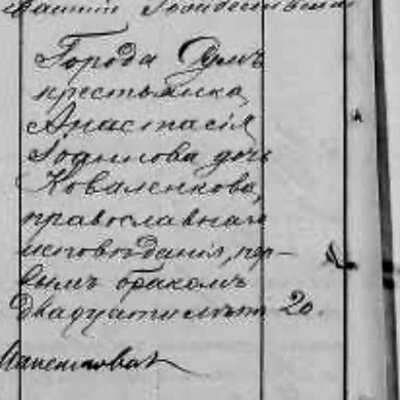 Города Сумъ
крестьянка
Анастасія
Іоаннова дочь
Коваленкова,
православнаго
исповѣданія, пер-
вымъ бракомъ
двадцати лѣтъ 20.